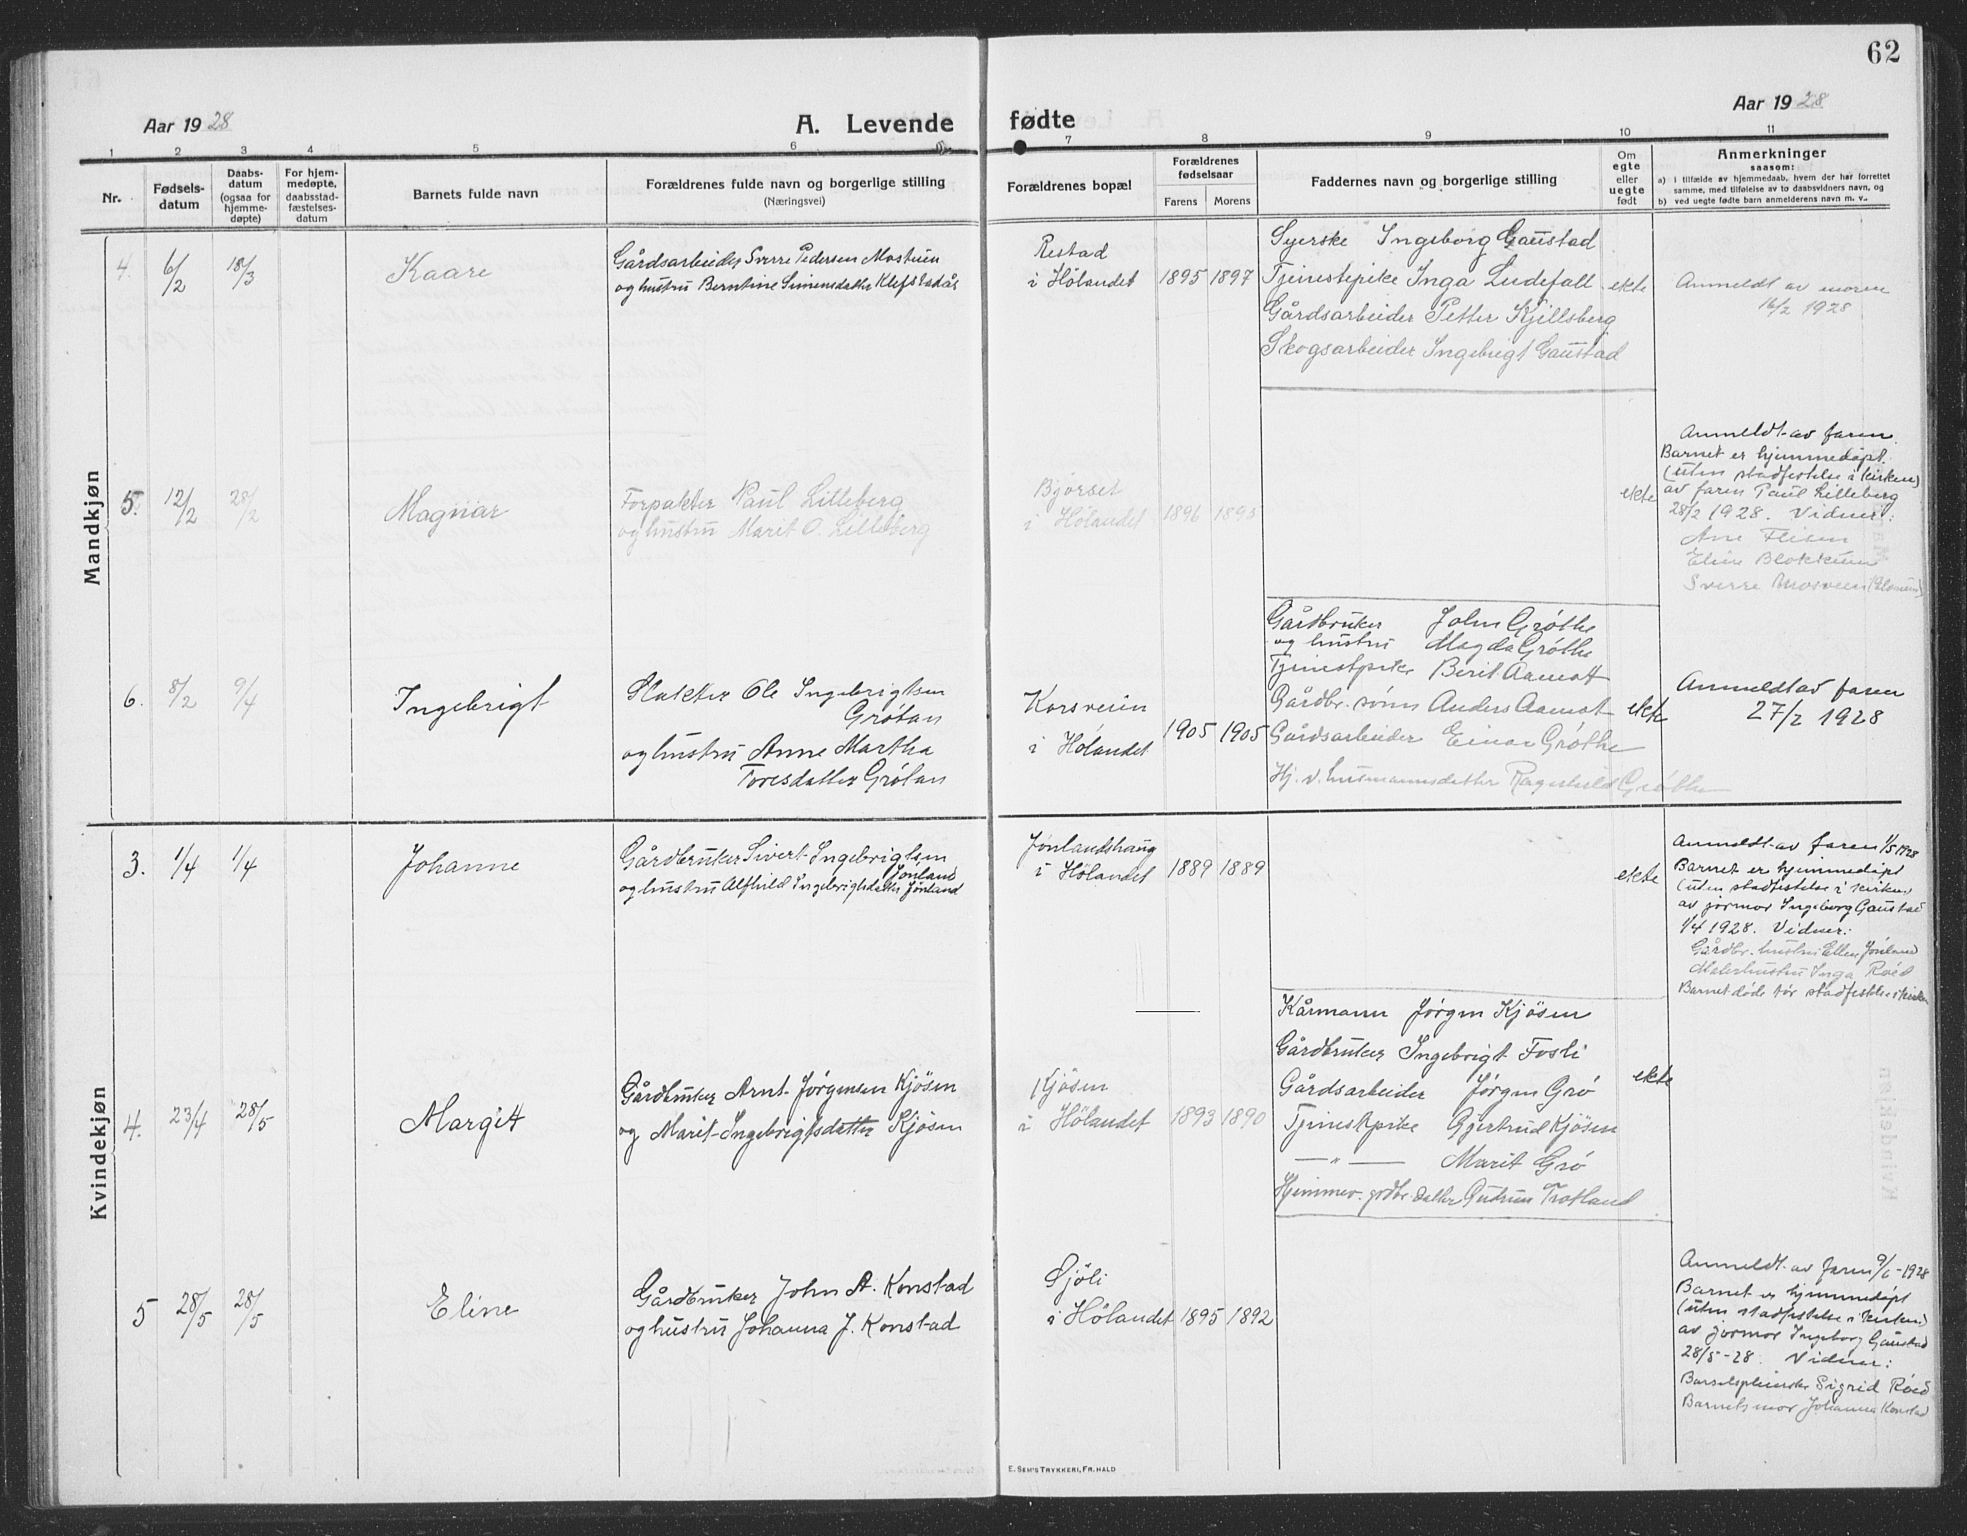 62
Aar 1928
A. Levende
fødte
Aar 1928
1 2 3 4 5 6 7 8 9 10 11
Nr.
Fødsels-
datum
Daabs-
datum
(ogsaa for
hjemme-
døpte)
For hjem-
medøpte,
daabsstad-
fæstelses-
datum
Barnets fulde navn
Forældrenes fulde navn og borgerlige stilling
(Næringsvei)
Forældrenes bopæl
Forældrenes
fødselsaar
Farens Morens
Faddernes navn og borgerlige stilling
Om
egte
eller
uegte
født
Anmerkninger
saasom:
a) i tilfælde av hjemmedaab, hvem der har forrettet
samme, med tilføielse av to daabsvidners navn, og
b) ved uegte født barn anmelderens navn m. v..
Mandkjøn
4. 6/2 18/3
Kaare
Gårdsarbeider Sverre Pedersen Mosveen
og hustru Berntine Simensdatter Klefstadås
Restad
i Hölandet
1895 1897
Syerske Ingeborg Gaustad
Tjenestepike Inga Ludefall
Gårdsarbeider Petter Kjillsberg
Skogsarbeider Ingebrigt Gaustad
ekte
Anmeldt av moren
16/2 1928
5. 12/2 28/2
Magnar
Forpakter Paul Lilleberg
og hustru Marit O. Lilleberg
Bjørset
i Hölandet
1896 1893
ekte
Anmeldt av faren.
Barnet er hjemmedøpt.
(uten stadfestelse i kirken)
av faren Paul Lilleberg
28/2 1928. Vidner:
Ane Flisen
Eline Blokkum
Sverre Mosveen
6. 8/2 9/4
Ingebrigt
Slakter Ole Ingebrigtsen
Grötan
og hustru Anne Martha
Toresdatter Grötan
Korsveien
i Hölandet
1905 1905
Gårdbruker John Gröthe
og hustru Magda Gröthe
Tjenestpike Berit Aamot
Gårdbr. sønn Anders Aamot
Gårdsarbeider Einar Gröthe
Hj. v. husmannsdatter Ragnhild Gröthe
ekte
Anmeldt av faren
27/2 1928
Kvindekjøn
3. 1/4 1/4
Johanne
Gårdbruker Sivert Ingebrigtsen
Jönland
og hustru Alfhild Ingebrigtsdatter Jönland
Jönlandshaug
i Hölandet
1889 1889
ekte
Anmeldt av faren 1/5 1928
Barnet er hjemmedøpt
(uten stadfestelse i kirken)
av jormor Ingeborg Gaustad
1/4 1928. Vidner:
Gårdbr. hustru Ellen Jönland
Malerhustru Inga Röed
Barnet døde før stadfestelse i kirken
4. 23/4 28/5
Margit
Gårdbruker Arnt Jörgensen Kjösen
og Marit Ingebrigtsdatter Kjösen
Kjösen
i Hölandet
1893 1890
Kårmann Jörgen Kjösen
Gårdbruker Ingebrigt Fosli
Gårdsarbeider Jörgen Grö
Tjenestpike Gjertrud Kjösen
— „ — Marit Grö
Hjemmev. grdbr. datter Gudrun Trotland
ekte
5 28/5 28/5
Eline
Gårdbruker John A. Konstad
og hustru Johanna J. Konstad
Sjöli
i Hölandet
1895 1892
Anmeldt av faren 9/6-1928
Barnet er hjemmedøpt
(uten stadfestelse i kirken)
av jormor Ingeborg Gaustad
28/5-28. Vidner:
Barselspleierske Sigrid Röed
Barnets mor Johanna Konstad
E. Sem's Trykkeri, Fr.hald